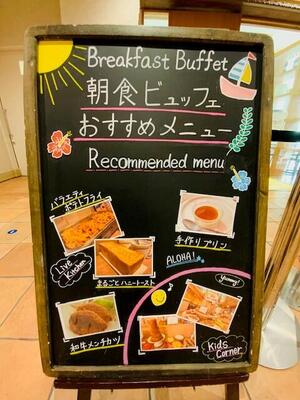 Breakfast Buffet
朝食ビュッフェ
おすすめメニュー
Recommended menu
バラエティ
ポテトフライ
手作りプリン
ALOHA!
Live
Kitchen
まるごとハニートースト
Yummy!
和牛メンチカツ
Kids
Corner